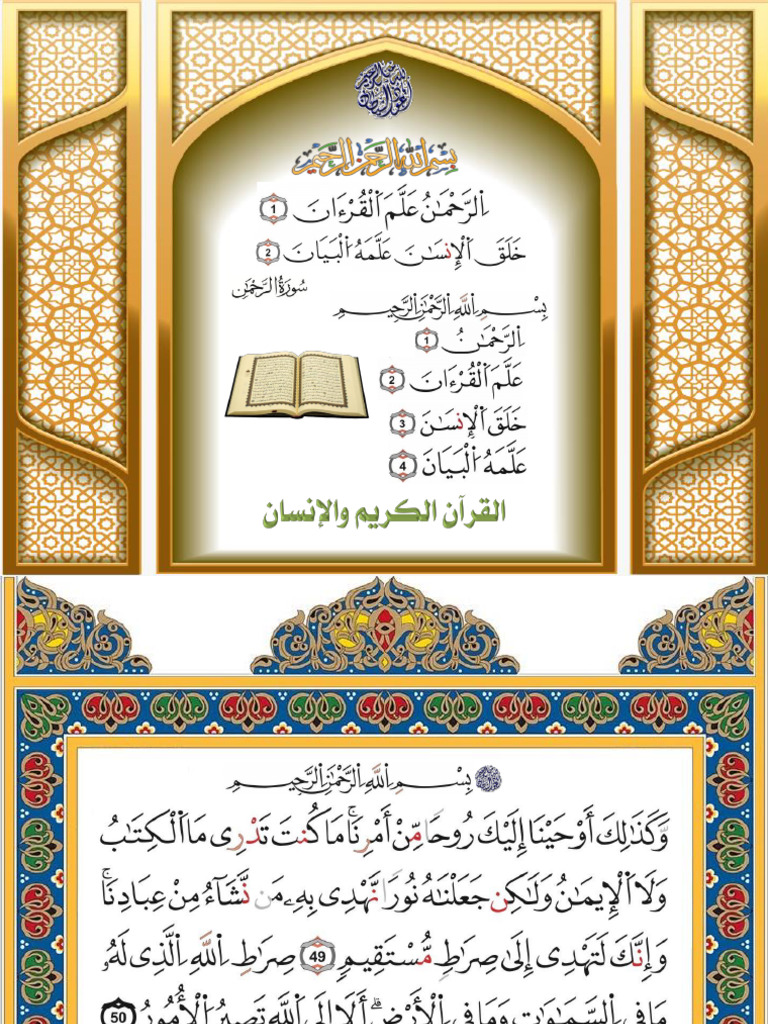 بِسْمِ اللَّهِ الرَّحْمَٰنِ الرَّحِيمِ
اِ۬لرَّحْمَٰنُ عَلَّمَ اَ۬لْقُرْءَانَ 1
خَلَقَ اَ۬لْإِنسَٰنَ عَلَّمَهُ اُ۬لْبَيَانَ 2
سُورَةُ الرَّحْمَٰن
بِسْمِ اِ۬للَّهِ اِ۬لرَّحْمَٰنِ اِ۬لرَّحِيمِ
اِ۬لرَّحْمَٰنُ 1
عَلَّمَ اَ۬لْقُرْءَانَ 2
خَلَقَ اَ۬لْإِنسَٰنَ 3
عَلَّمَهُ اُ۬لْبَيَانَ 4
القرآن الكريم والإنسان
بِسْمِ اِ۬للَّهِ اِ۬لرَّحْمَٰنِ اِ۬لرَّحِيمِ
وَكَذَٰلِكَ أَوْحَيْنَا إِلَيْكَ رُوحًا مِّنْ أَمْرِنَا مَا كُنتَ تَدْرِى مَا اَ۬لْكِتَٰبُ
وَلَا اَ۬لْإِيمَٰنُ وَلَٰكِن جَعَلْنَٰهُ نُورًا نَّهْدِى بِهِۦ مَن نَّشَآءُ مِنْ عِبَادِنَا
وَإِنَّكَ لَتَهْدِى إِلَىٰ صِرَٰطٍ مُّسْتَقِيمٍ 49 صِرَٰطِ اِ۬للَّهِ اِ۬لَّذِى لَهُۥ
مَا فِى اِ۬لسَّمَٰوَٰتِ وَمَا فِى اِ۬لْأَرْضِ أَلَا إِلَى اَ۬للَّهِ تَصِيرُ اُ۬لْأُمُورُ 50